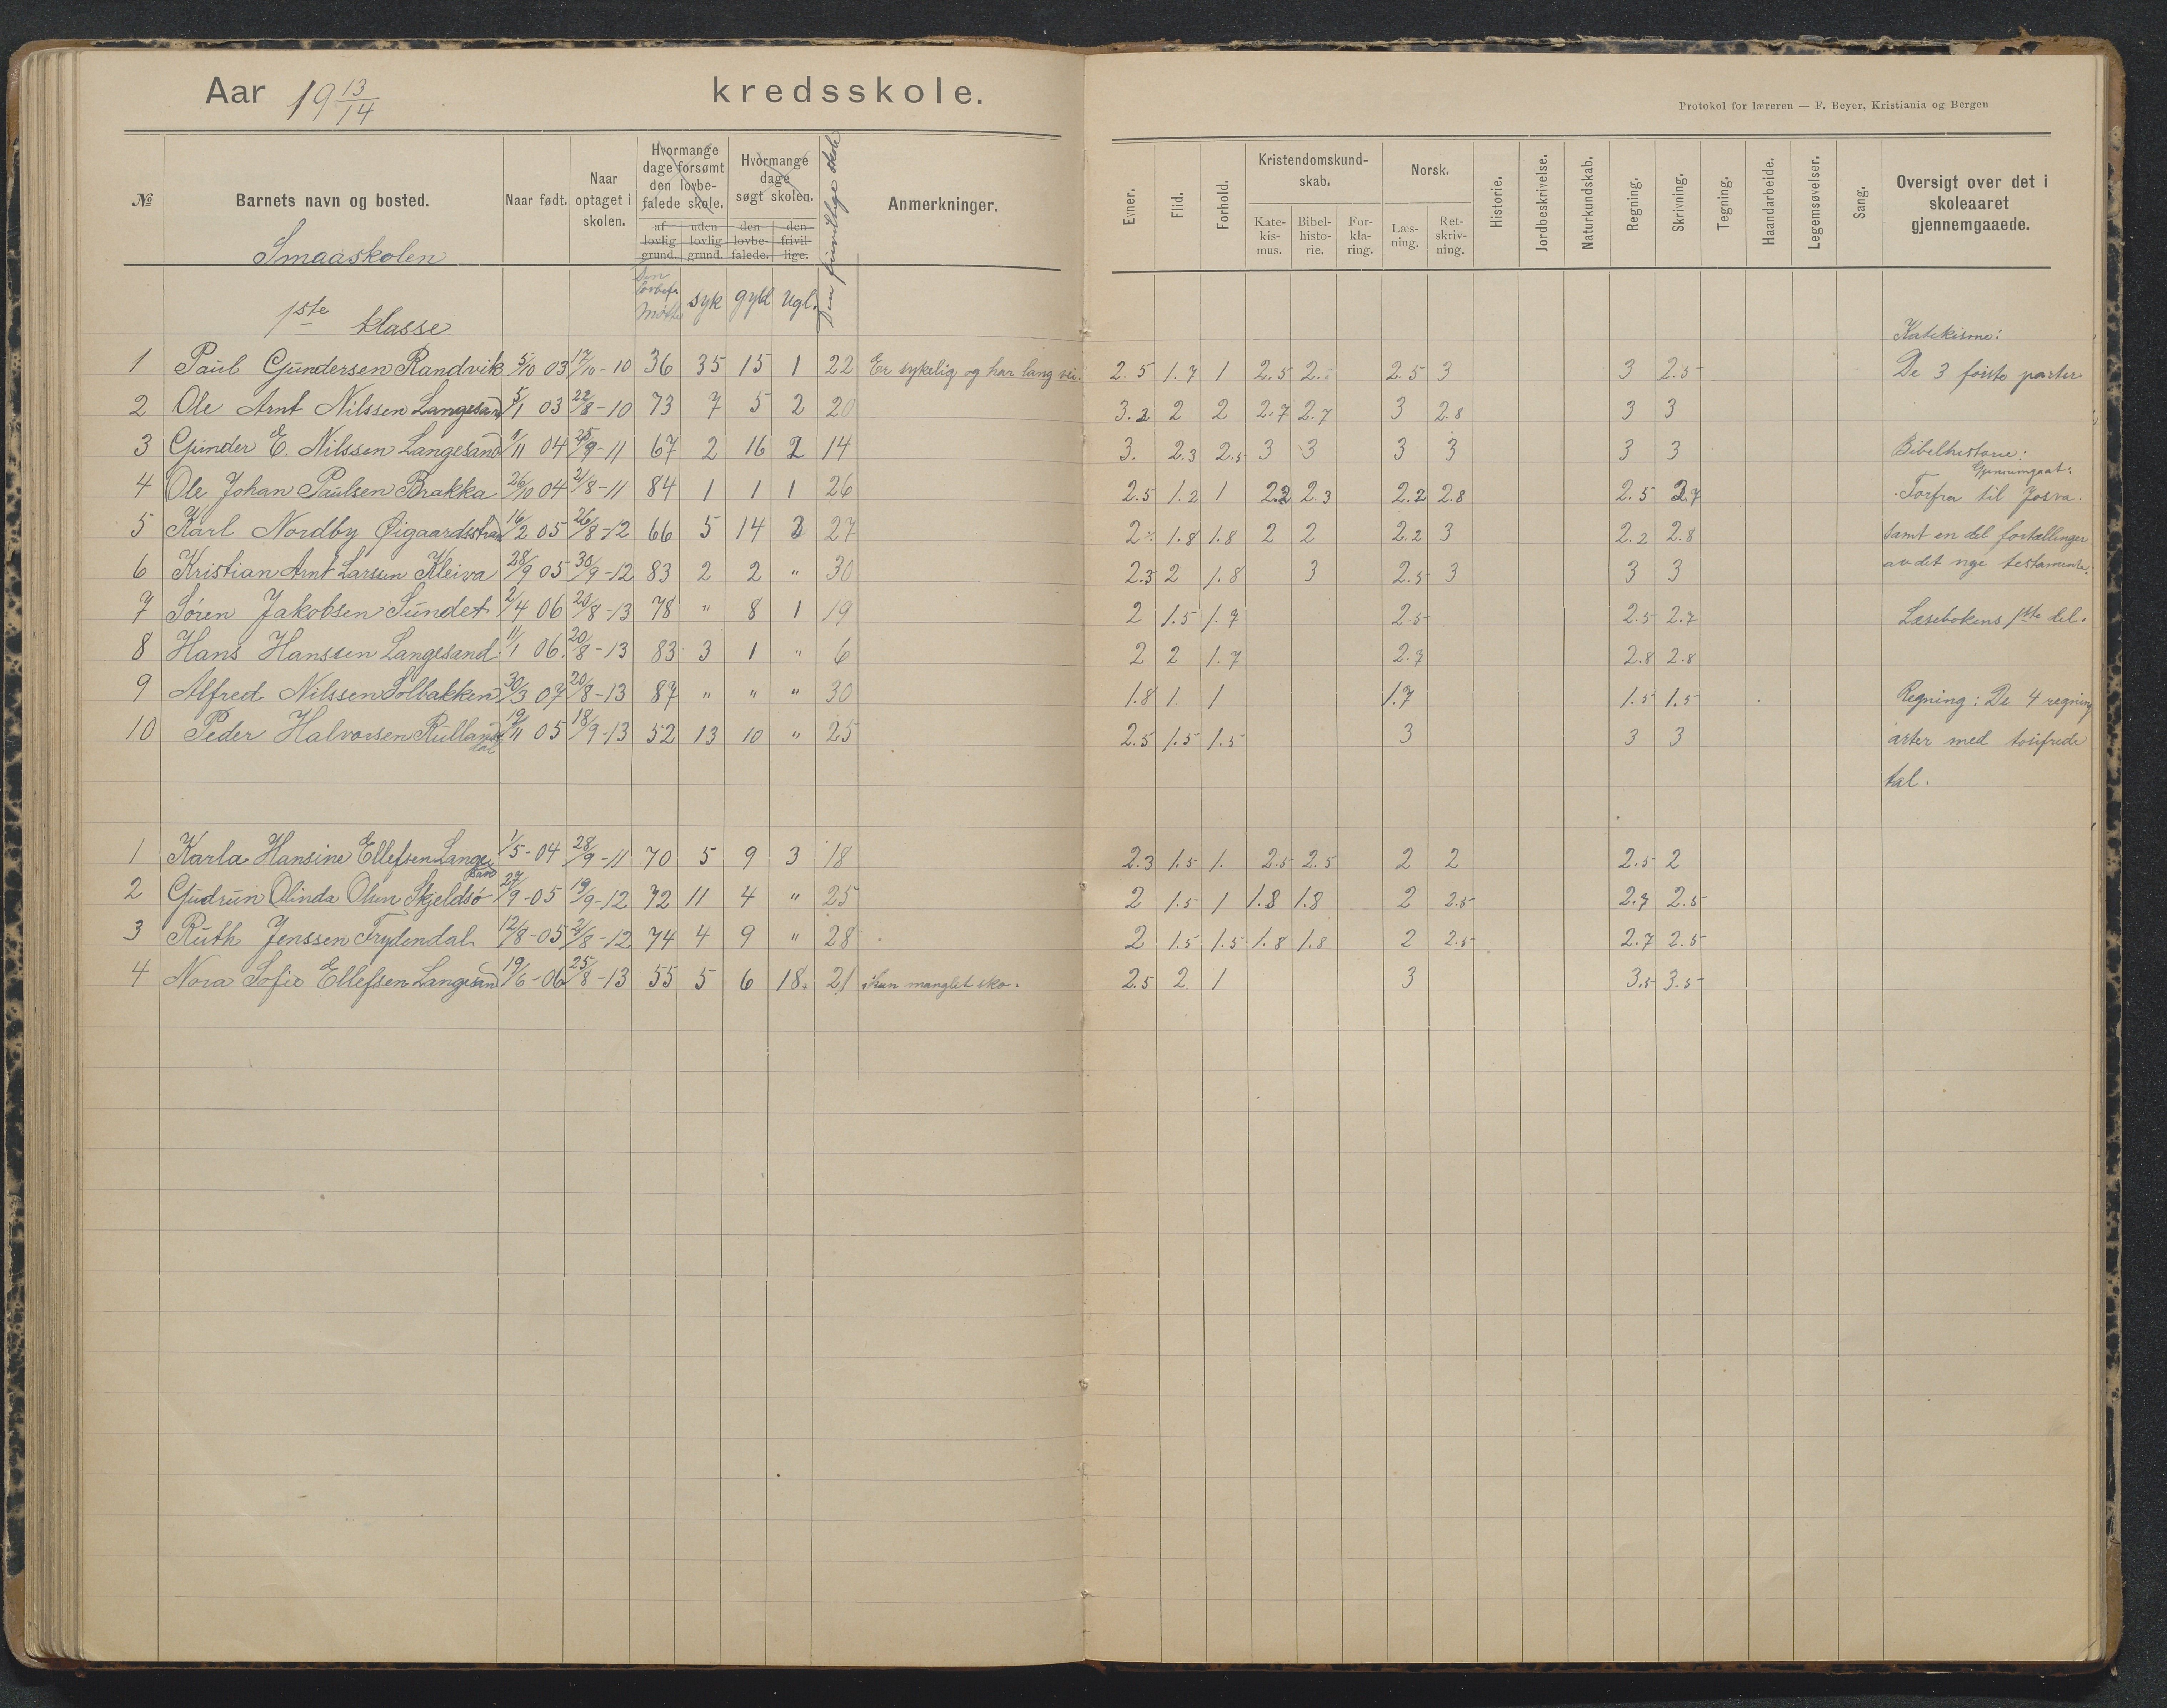 Aar 19 13/14 kredsskole.
Protokol for læreren — F. Beyer, Kristiania og Bergen
№ Barnets navn og bosted. Naar født. Naar optaget i skolen. Hvormange dage forsømt den lovbefalede skole. af lovlig grund. uden lovlig grund. Hvormange dage søgt skolen. den lovbefalede. den frivillige. Den frivillige skole Anmerkninger.
Evner. Flid. Forhold. Kristendomskundskab. Katekismus. Bibelhistorie. Forklaring. Norsk. Læsning. Retskrivning. Historie. Jordbeskrivelse. Naturkundskab. Regning. Skrivning. Tegning. Haandarbeide. Legemsøvelser. Sang. Oversigt over det i skoleaaret gjennemgaaede.
Smaaskolen
Den lovbef. møtte syk gyld Ugl.
1ste klasse
Katekisme:
1 Paul Gundersen Randvik 5/10 03 17/10-10 36 35 15 1 22 Er sykelig og har lang vei. 2.5 1.7 1 2.5 2. 2.5 3 3 2.5 De 3 første parter
2 Ole Arnt Nilssen Langesand 5/1 03 22/8-10 73 7 5 2 20 3.2 2 2 2.7 2.7 3 2.8 3 3
3 Gunder E. Nilssen Langesand 1/11 04 25/9-11 67 2 16 2 14 3. 2.3 2.5 3 3 3 3 3 3 Bibelhistorie:
Gjennemgaat:
4 Ole Johan Paulsen Brakka 26/10 04 21/8-11 84 1 1 1 26 2.5 1.2 1 2.2 2.3 2.2 2.8 2.5 2.7 Forfra til Josva.
5 Karl Nordby Øigaardsstran 16/2 05 26/8-12 66 5 14 3 27 2 1.8 1.8 2 2 2.2 3 2.2 2.8 samt en del fortællinger
6 Kristian Arnt Larssen Kleiva 28/9 05 30/9-12 83 2 2 " 30 2.3 2 1.8 3 2.5 3 3 3 av det nye testamente.
7 Søren Jakobsen Sundet 2/4 06 20/8-13 78 " 8 1 19 2 1.5 1.7 2.5 2.5 2.7 Læsebokens 1ste del.
8 Hans Hanssen Langesand 11/1 06. 20/8-13 83 3 1 " 6 2 2 1.7 2.7 2.8 2.8
9 Alfred Nilssen Solbakken 30/3 07 20/8-13 87 " " " 30 1.8 1 1 1.7 1.5 1.5 Regning: De 4 regning
10 Peder Halvorsen Rullandsdal 19/11 05 18/9-13 52 13 10 " 25 2.5 1.5 1.5 3 3 3 arter med tosifrede
tal.
1 Karla Hansine Ellefsen Langesand 1/5-04 28/9-11 70 5 9 3 18 2.3 1.5 1. 2.5 2.5 2 2 2.5 2
2 Gudrun Olinda Olsen Skjeldsø 27/9-05 19/9-12 72 11 4 " 25 2 1.5 1 1.8 1.8 2 2.5 2.7 2.5
3 Ruth Jenssen Frydendal 12/8-05 21/8-12 74 4 9 " 28 2 1.5 1.5 1.8 1.8 2 2.5 2.7 2.5
4 Nora Sofie Ellefsen Langesand 19/6-06 25/8-13 55 5 6 18. 21 :hun manglet sko. 2.5 2 1 3 3.5 3.5